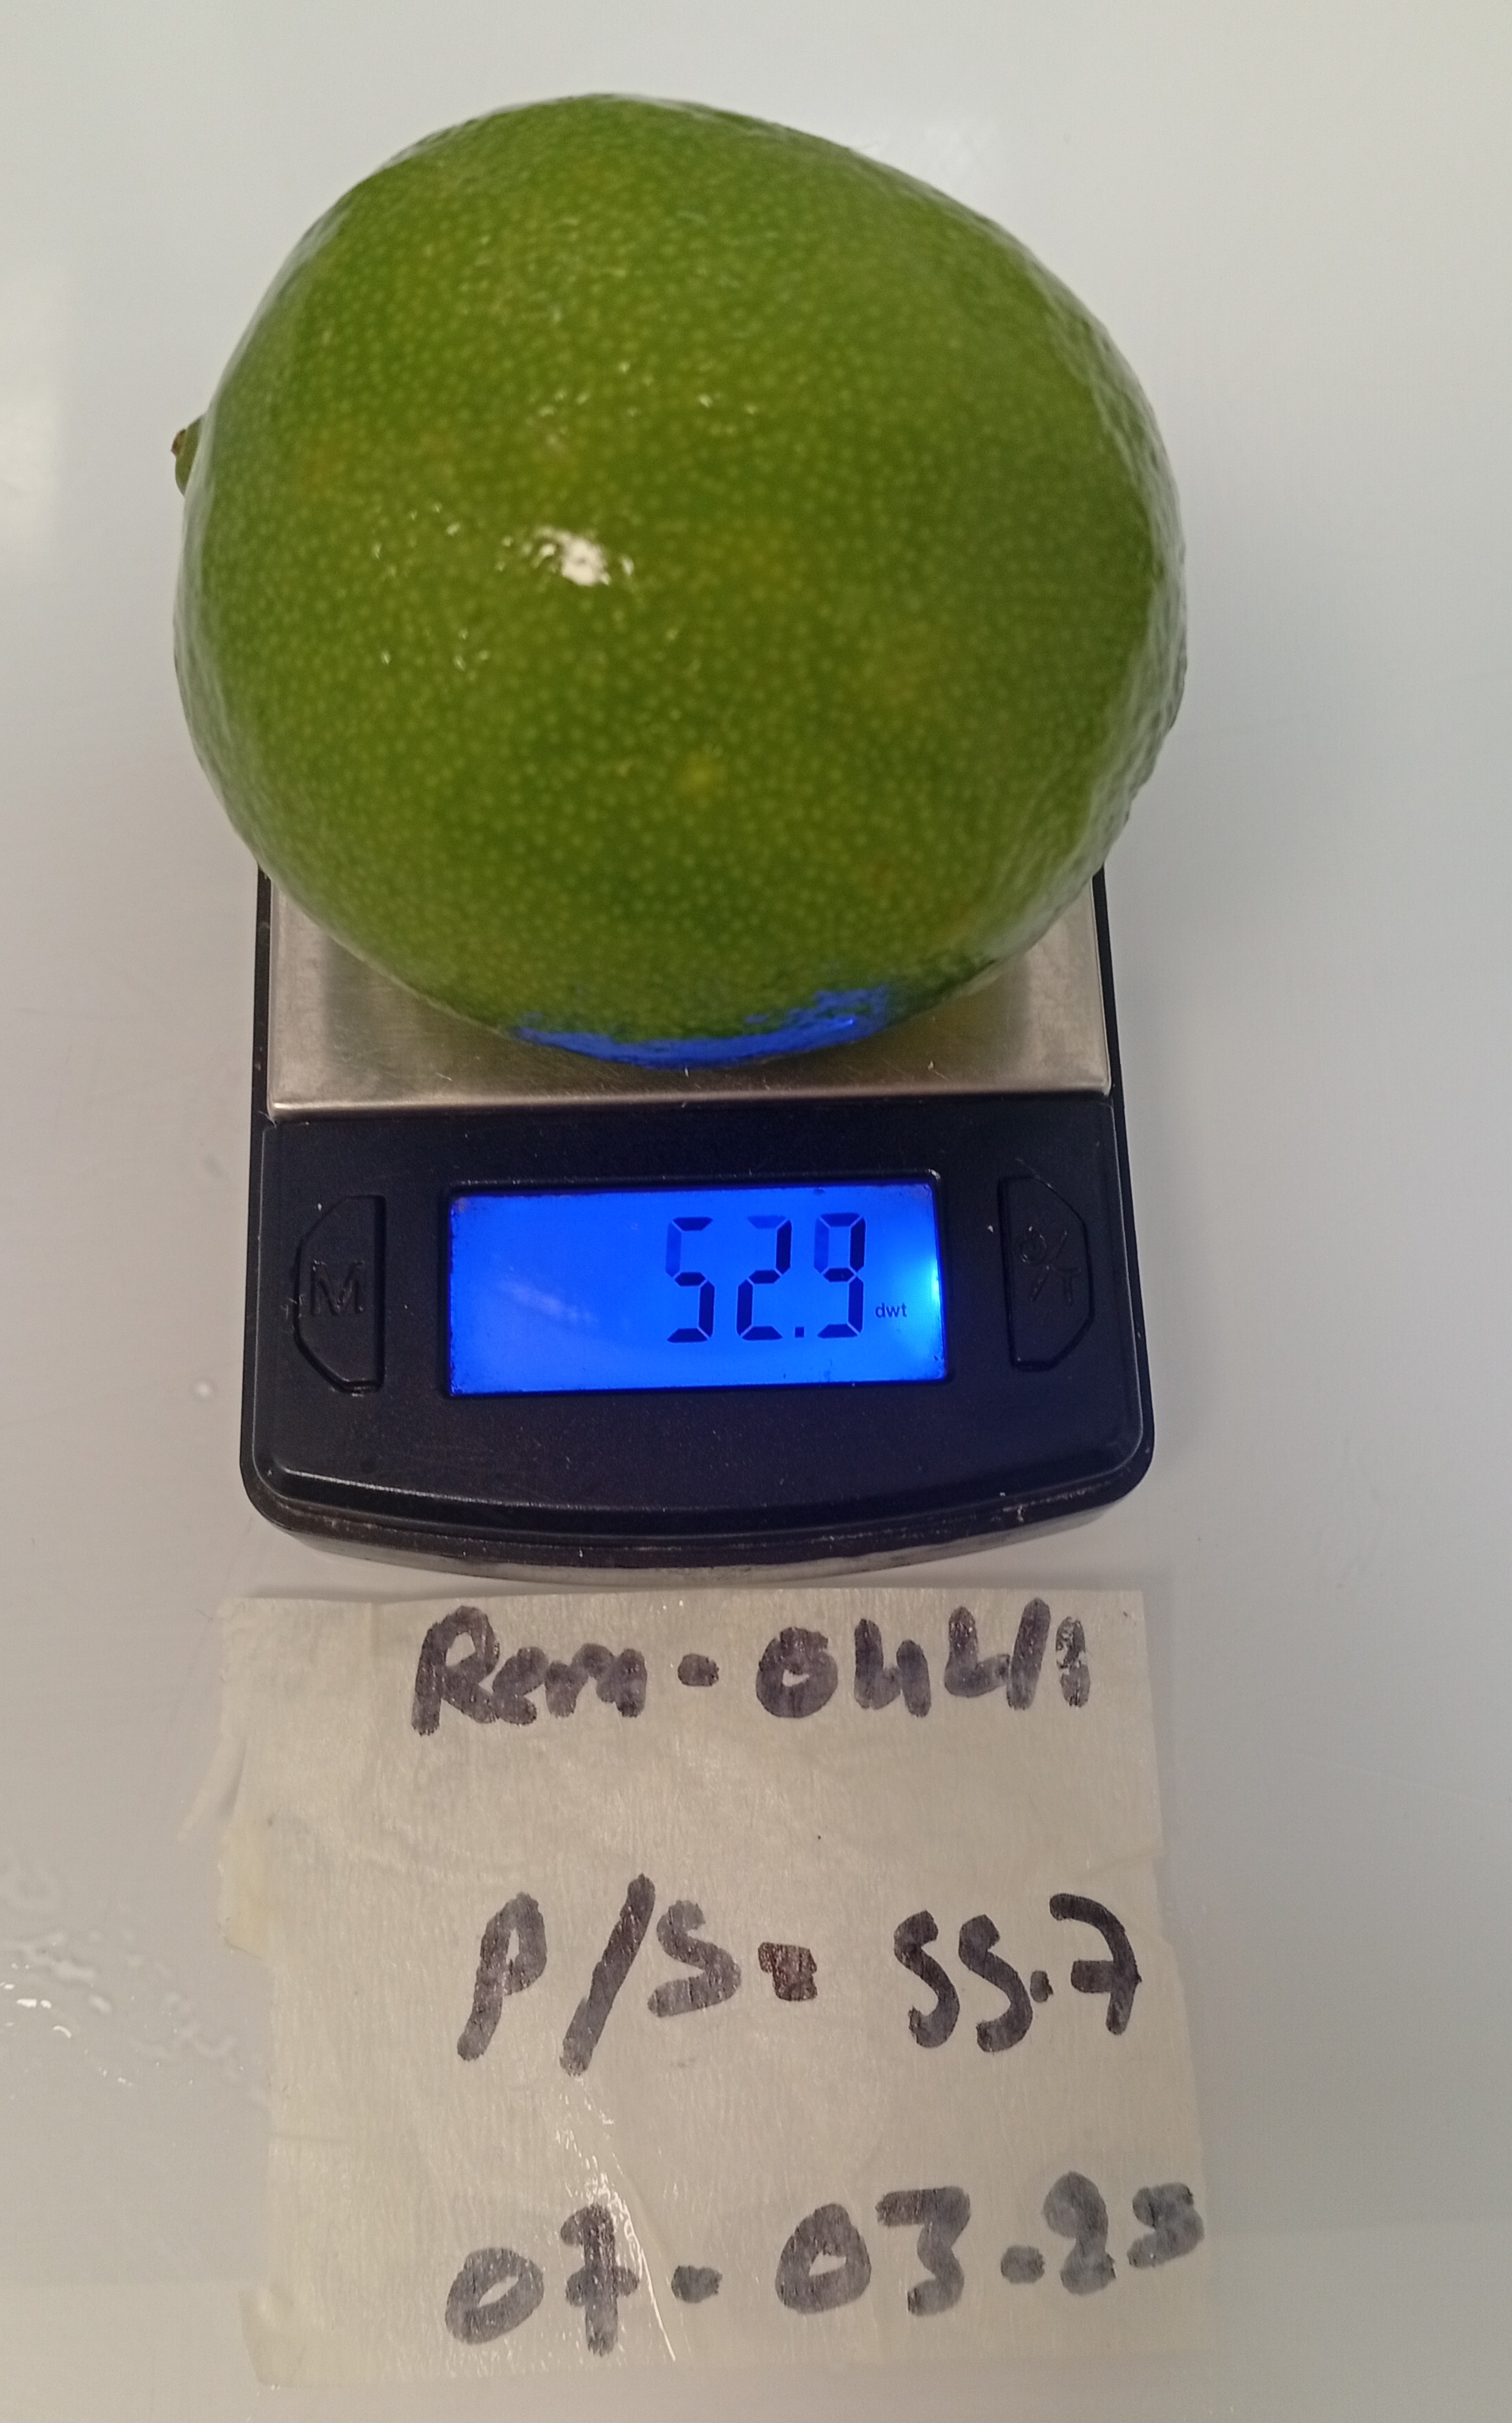 52.9 dwt
M
Rem-044/1
P/S- 55.7
07-03-25